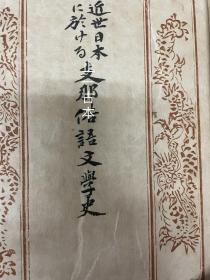 近世日本
に於ける支那俗語文學史
古本